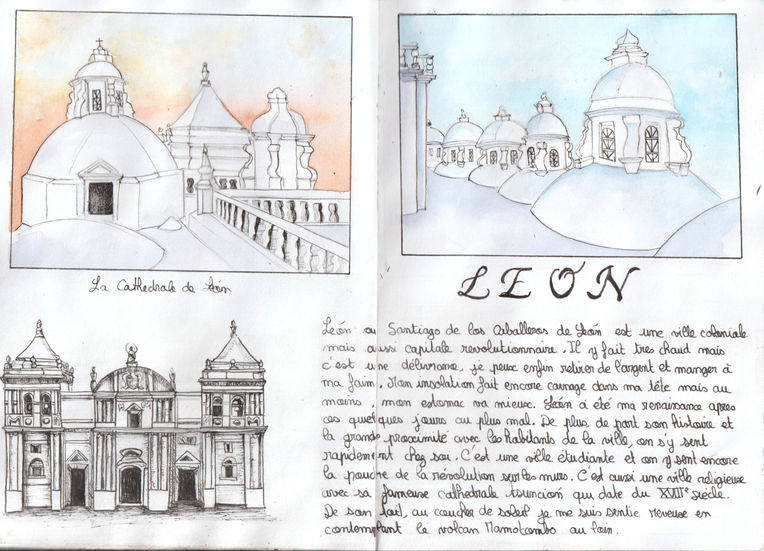 La Cathedrale de León
LEÓN
León ou Santiago de los Caballeros de León est une ville coloniale
mais aussi capitale revolutionnaire. Il y fait tres chaud mais
c'est une délivrance, je peux enfin retirer de l'argent et manger à
ma faim. Mon insolation fait encore carnage dans ma tête mais au
moins mon estomac va mieux. León a été ma renaissance apres
ces quelques jours au plus mal. De plus de part son histoire et
la grande proximité avec les habitants de la ville, on s'y sent
rapidement chez soi. C'est une ville étudiante et on y sent encore
la poudre de la révolution sur les murs. C'est aussi une ville religieuse
avec sa fameuse cathedrale qui date du XVIIIe siècle.
De son toit, au coucher de soleil je me suis sentie reveuse en
contemplant le volcan Momotombo au loin.